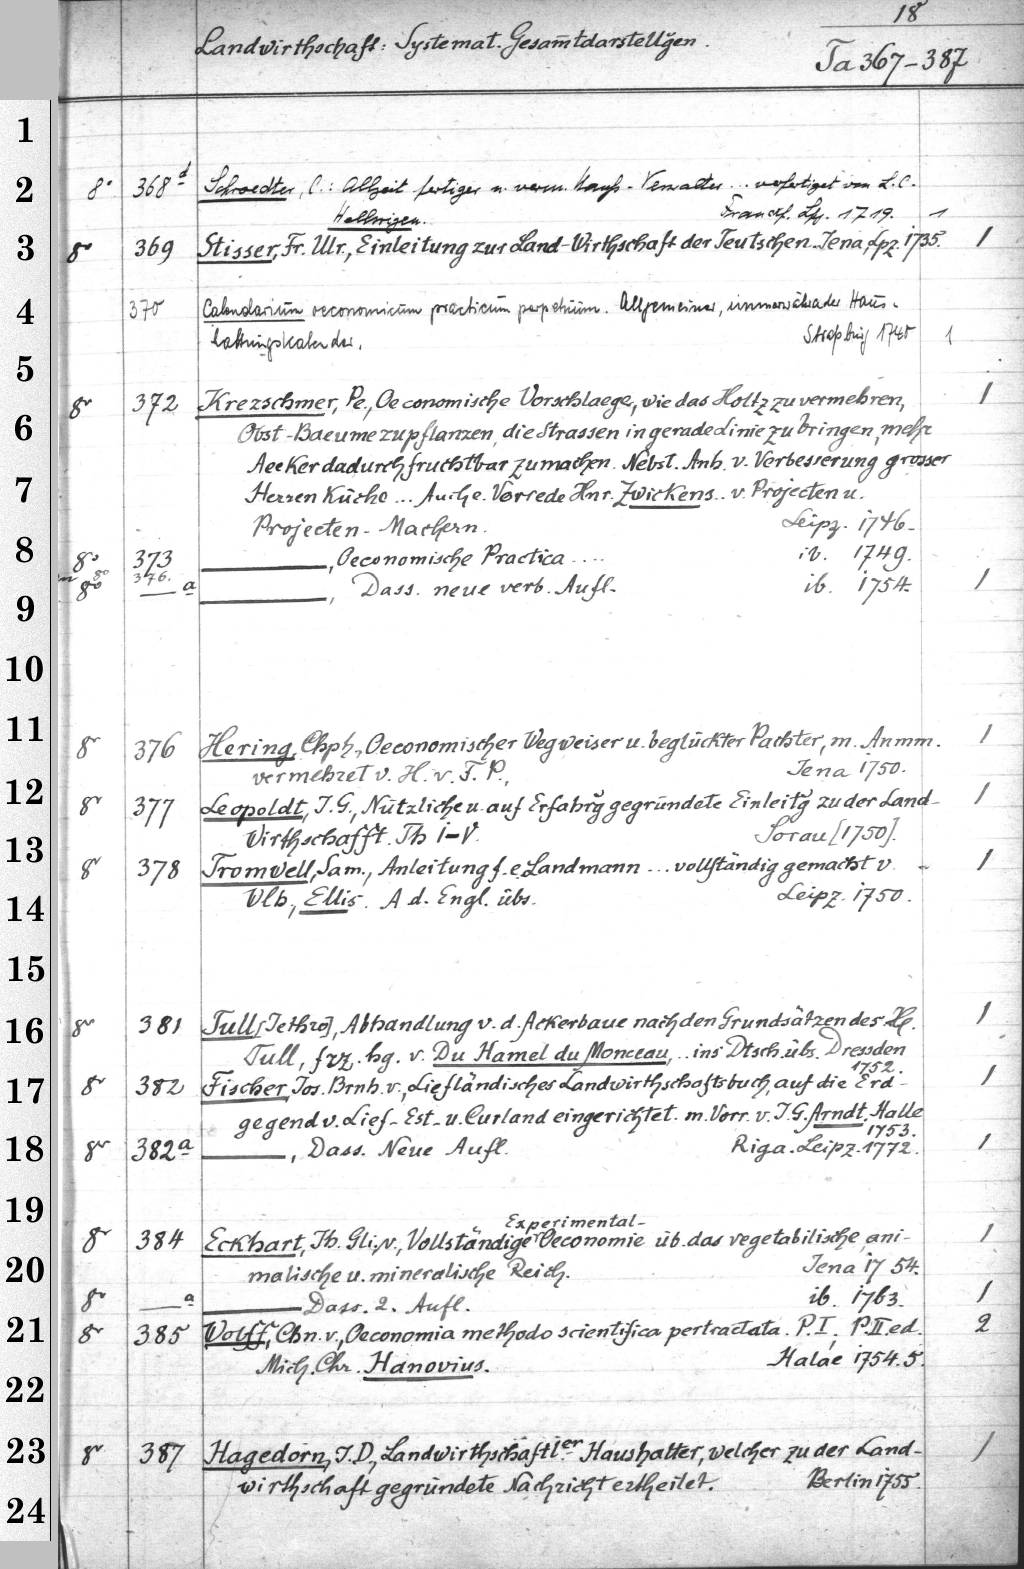 18
Landwirthschaft: Systemat. Gesam̄tdarstellg̃en.
Ta 367-387
1
2 8° 368 d Schroedter, C.: Allzeit fertiger u. verm. Haus-Verwalter ... verfertiget von L. C.
Hellwigen. Franckf. Lpz. 1719. 1
3 8° 369 Stisser, Fr. Ulr., Einleitung zur Land-Wirthschaft der Teutschen. Jena, Lpz. 1735. 1
4 370 Calendarium oeconomicum practicum perpetuum. Allgemeiner, immerwährender Haus-
haltungskalender. Straßburg 1740 1
5
8° 372 Krezschmer, Pe., Oeconomische Vorschlaege, wie das Holtz zu vermehren, 1
6 Obst-Baeume zu pflanzen, die Strassen in gerade Linie zu bringen, mehr
Aecker dadurch fruchtbar zu machen. Nebst. Anh. v. Verbesserung grosser
7 Herren Küche ... Auch e. Vorrede Hnr. Zwickens .. v. Projecten u.
Projecten-Machern. Leipz. 1746.
8 8° 373 ———, Oeconomische Practica .... ib. 1749.
8° 376.
8° — a ———, Dass. neue verb. Aufl. ib. 1754. 1
9
10
11 8° 376 Hering, Chph., Oeconomischer Wegweiser u. beglückter Pachter, m. Anmm. 1
vermehret v. H. v. F. P., Jena 1750.
12 8° 377 Leopoldt, J. G., Nützliche u. auf Erfahrg̃ gegründete Einleitg̃ zu der Land- 1
Wirthschafft. Th I-V. Sorau [1750].
13 8° 378 Tromwell, Sam., Anleitung f. e. Landmann ... vollständig gemacht v. 1
14 Wlh., Ellis. A d. Engl. übs. Leipz. 1750.
15
16 8° 381 Tull [Jethro], Abhandlung v. d. Ackerbaue nach den Grundsätzen des H.
1
Tull, frz. hg. v. Du Hamel du Monceau, .. ins Dtsch. übs. Dresden
1752.
17 8° 382 Fischer, Jos. Brnh. v., Liefländisches Landwirthschaftsbuch, auf die Erd- 1
gegend v. Lief- Est- u. Curland eingerichtet. m. Vorr. v. J. G. Arndt, Halle
1753.
18 8° 382 a ———, Dass. Neue Aufl. Riga. Leipz. 1772. 1
19
Experimental-
8° 384 Eckhart, Jh. Gli. v., Vollständige Oeconomie üb. das vegetabilische, ani- 1
20 malische u. mineralische Reich. Jena 1754.
8° — a ——— Dass. 2. Aufl. ib. 1763. 1
21 8° 385 Wolff, Chn. v., Oeconomia methodo scientifica pertractata. P. I, P. II. ed. 2
Mich. Chr. Hanovius. Halae 1754. 5.
22
23 8° 387 Hagedorn, J. D., Landwirthschaftl.er Haushalter, welcher zu der Land- 1
wirthschaft gegründete Nachricht ertheilet. Berlin 1755.
24